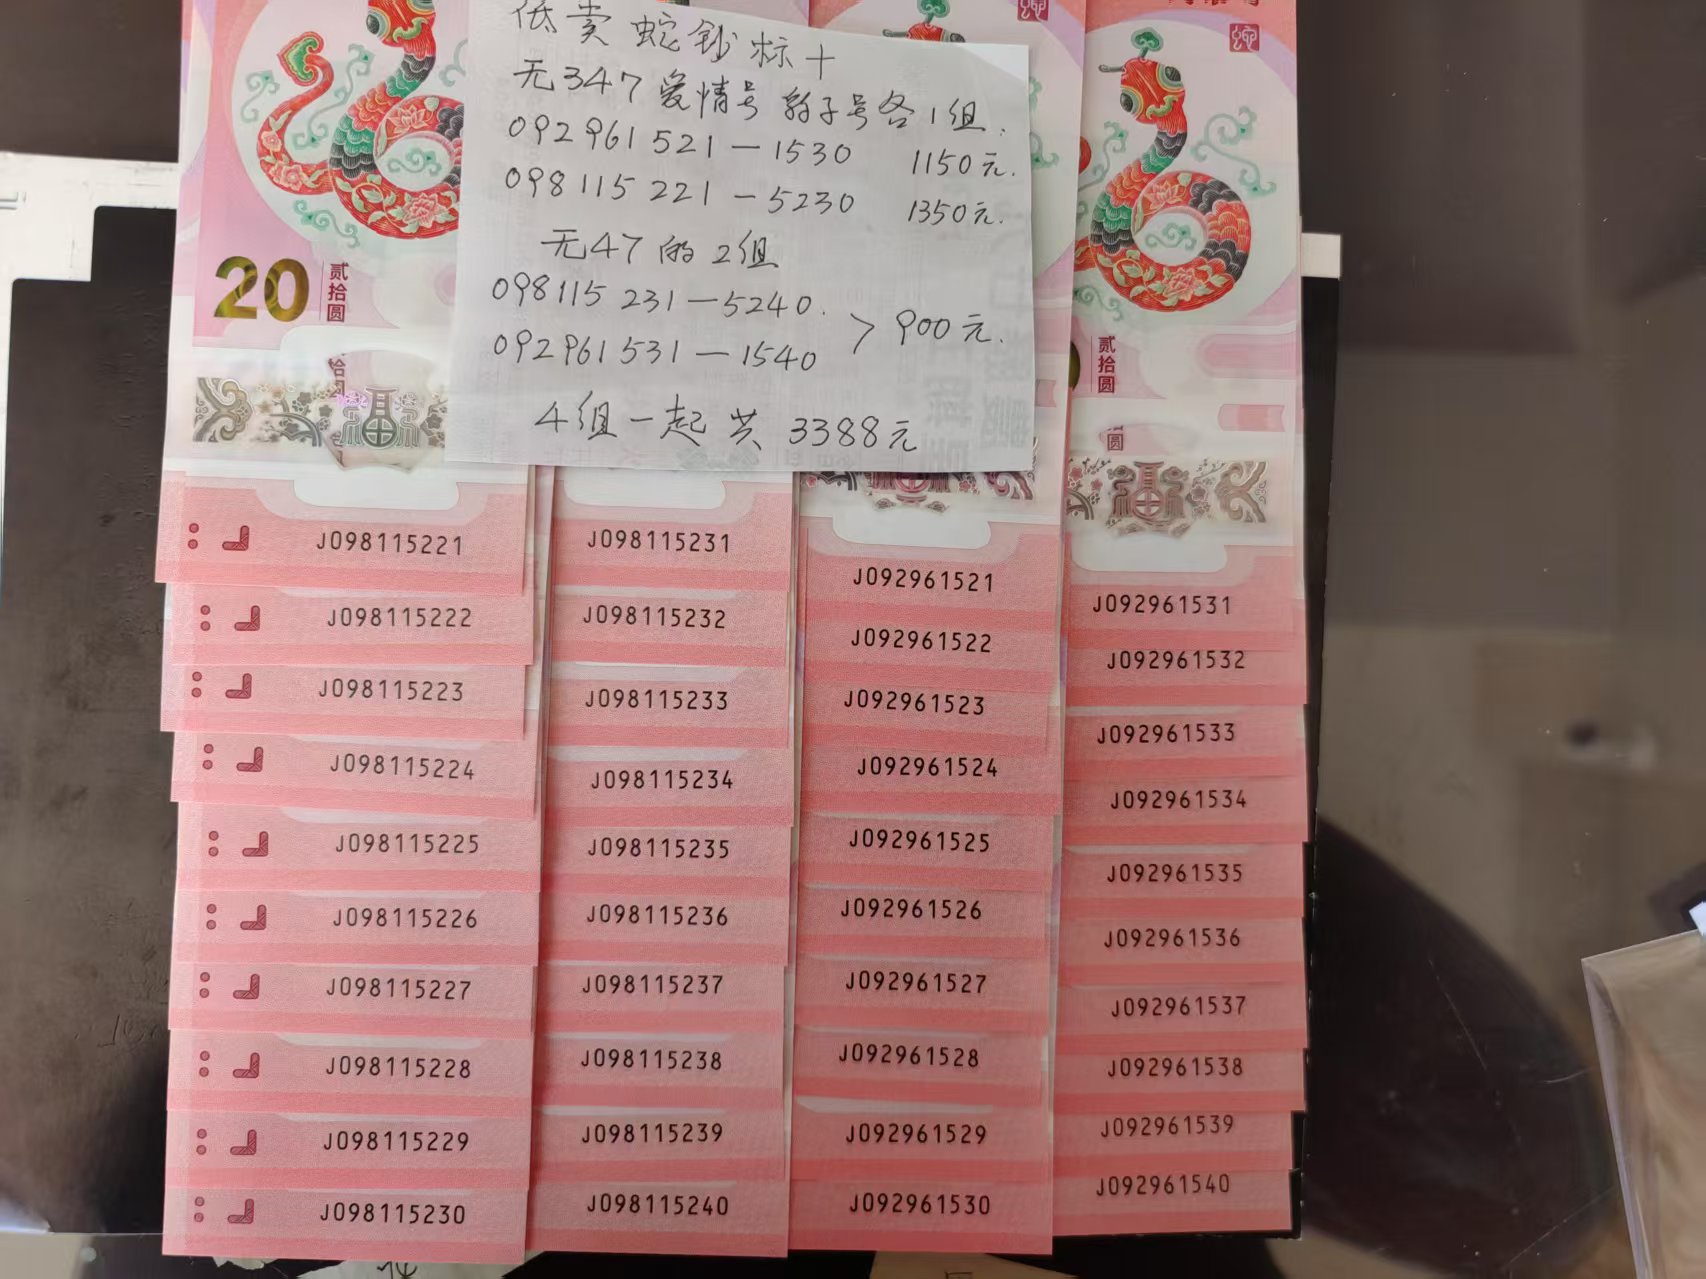 低卖蛇钞标十
无347爱情号豹子号各1组.
092961521—1530 1150元.
098115221—5230 1350元.
无47的2组
098115231—5240.
092961531—1540 > 900元.
4组一起共3388元
20
贰拾圆
贰拾圆
圆
J098115221
J098115222
J098115223
J098115224
J098115225
J098115226
J098115227
J098115228
J098115229
J098115230
J098115231
J098115232
J098115233
J098115234
J098115235
J098115236
J098115237
J098115238
J098115239
J098115240
J092961521
J092961522
J092961523
J092961524
J092961525
J092961526
J092961527
J092961528
J092961529
J092961530
J092961531
J092961532
J092961533
J092961534
J092961535
J092961536
J092961537
J092961538
J092961539
J092961540